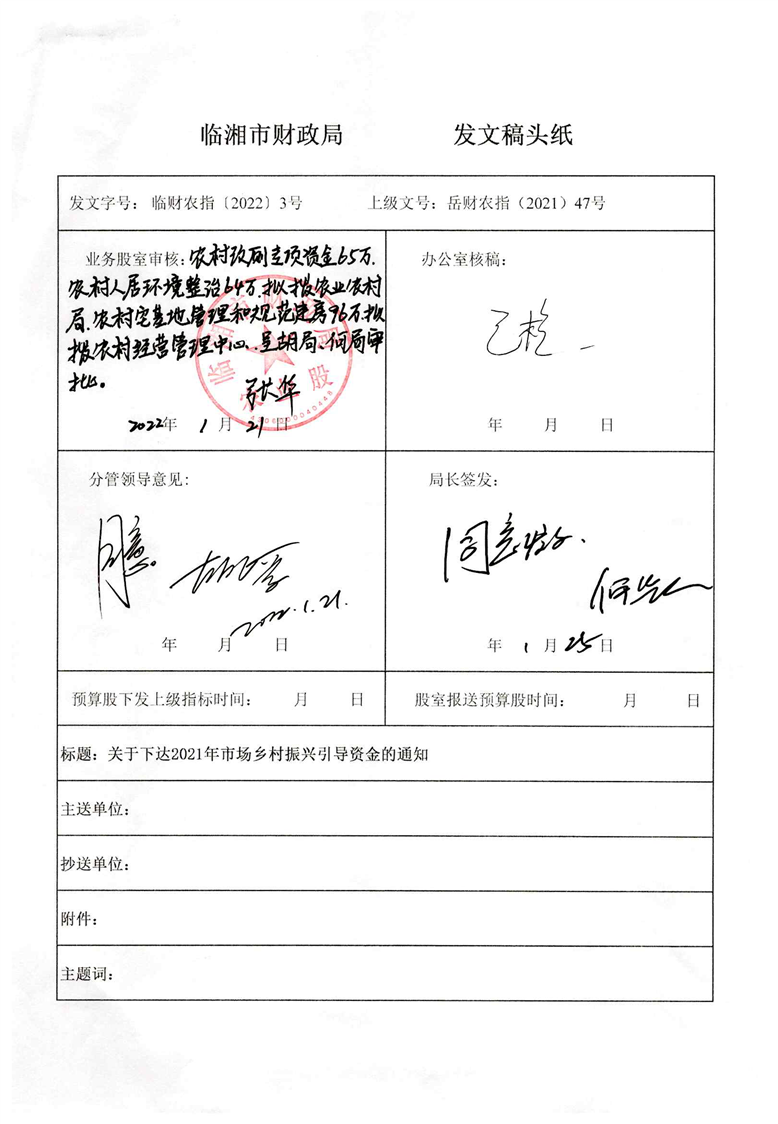 临湘市财政局 发文稿头纸
发文字号：临财农指〔2022〕3号 上级文号：岳财农指（2021）47号
业务股室审核：农村改厕专项资金65万.
农村人居环境整治64万.拟拨农业农村
局.农村宅基地管理和规范建房96万拟
拨农村经营管理中心.呈胡局、何局审
批。
2022年 1月 21日
农业股
4306000040448
办公室核稿：
已核
年 月 日
分管领导意见：
同意。
2022.1.21.
年 月 日
局长签发：
同意
年 1月 25日
预算股下发上级指标时间： 月 日
股室报送预算股时间： 月 日
标题：关于下达2021年市场乡村振兴引导资金的通知
主送单位：
抄送单位：
附件：
主题词：